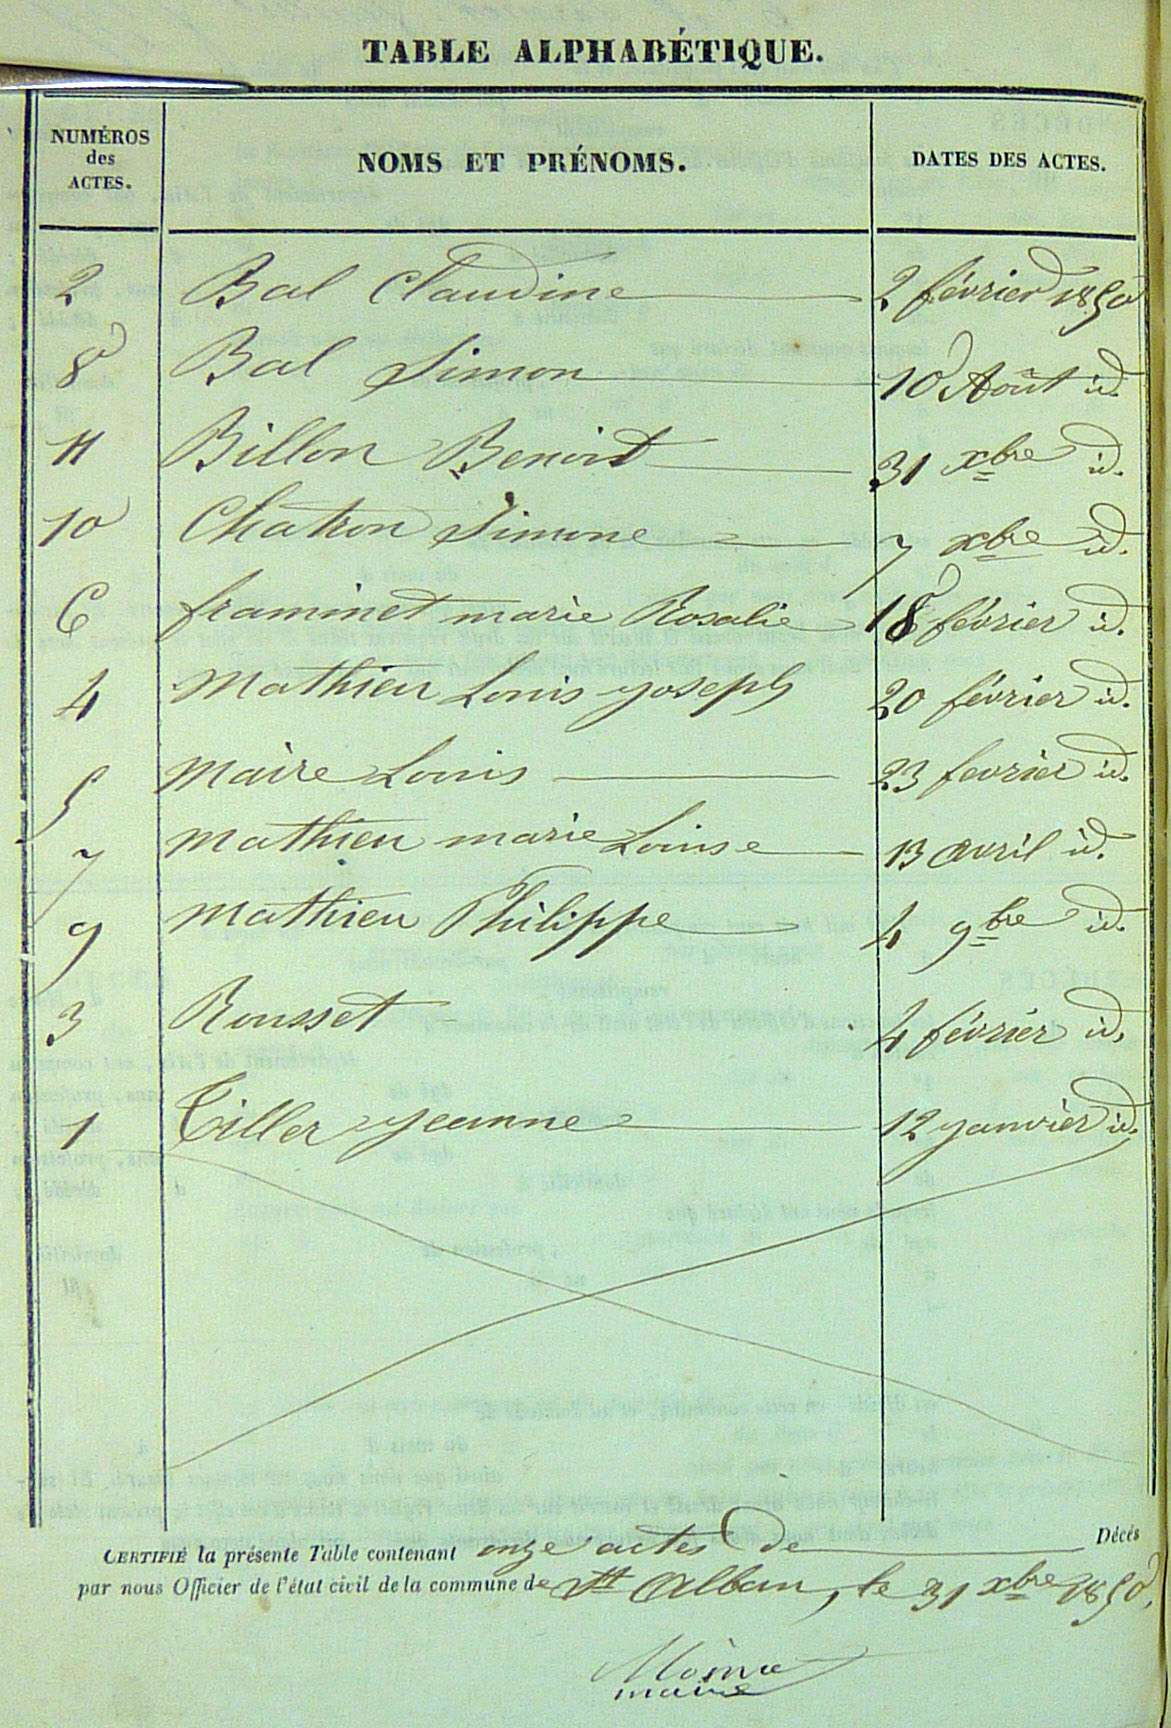 TABLE ALPHABÉTIQUE.
NUMÉROS des ACTES. NOMS ET PRÉNOMS. DATES DES ACTES.
2 Bal Claudine 2 février 1850
8 Bal Simon 10 Août id.
11 Billon Benoit 31 xbre id.
10 Chatron Simone 7 xbre id.
6 framinet marie Rosalie 18 février id.
4 Mathieu Louis yoseph 20 février id.
5 Maire Louis 23 fevrier id.
7 Mathieu marie Louise 13 avril id.
9 Mathieu Philippe 4 9bre id.
3 Rousset 4 février id.
1 Tiller yeanne 12 yanvier id.
CERTIFIÉ la présente Table contenant onze actes De Décés
par nous Officier de l'état civil de la commune de St Alban, le 31 xbre 1850.
maire